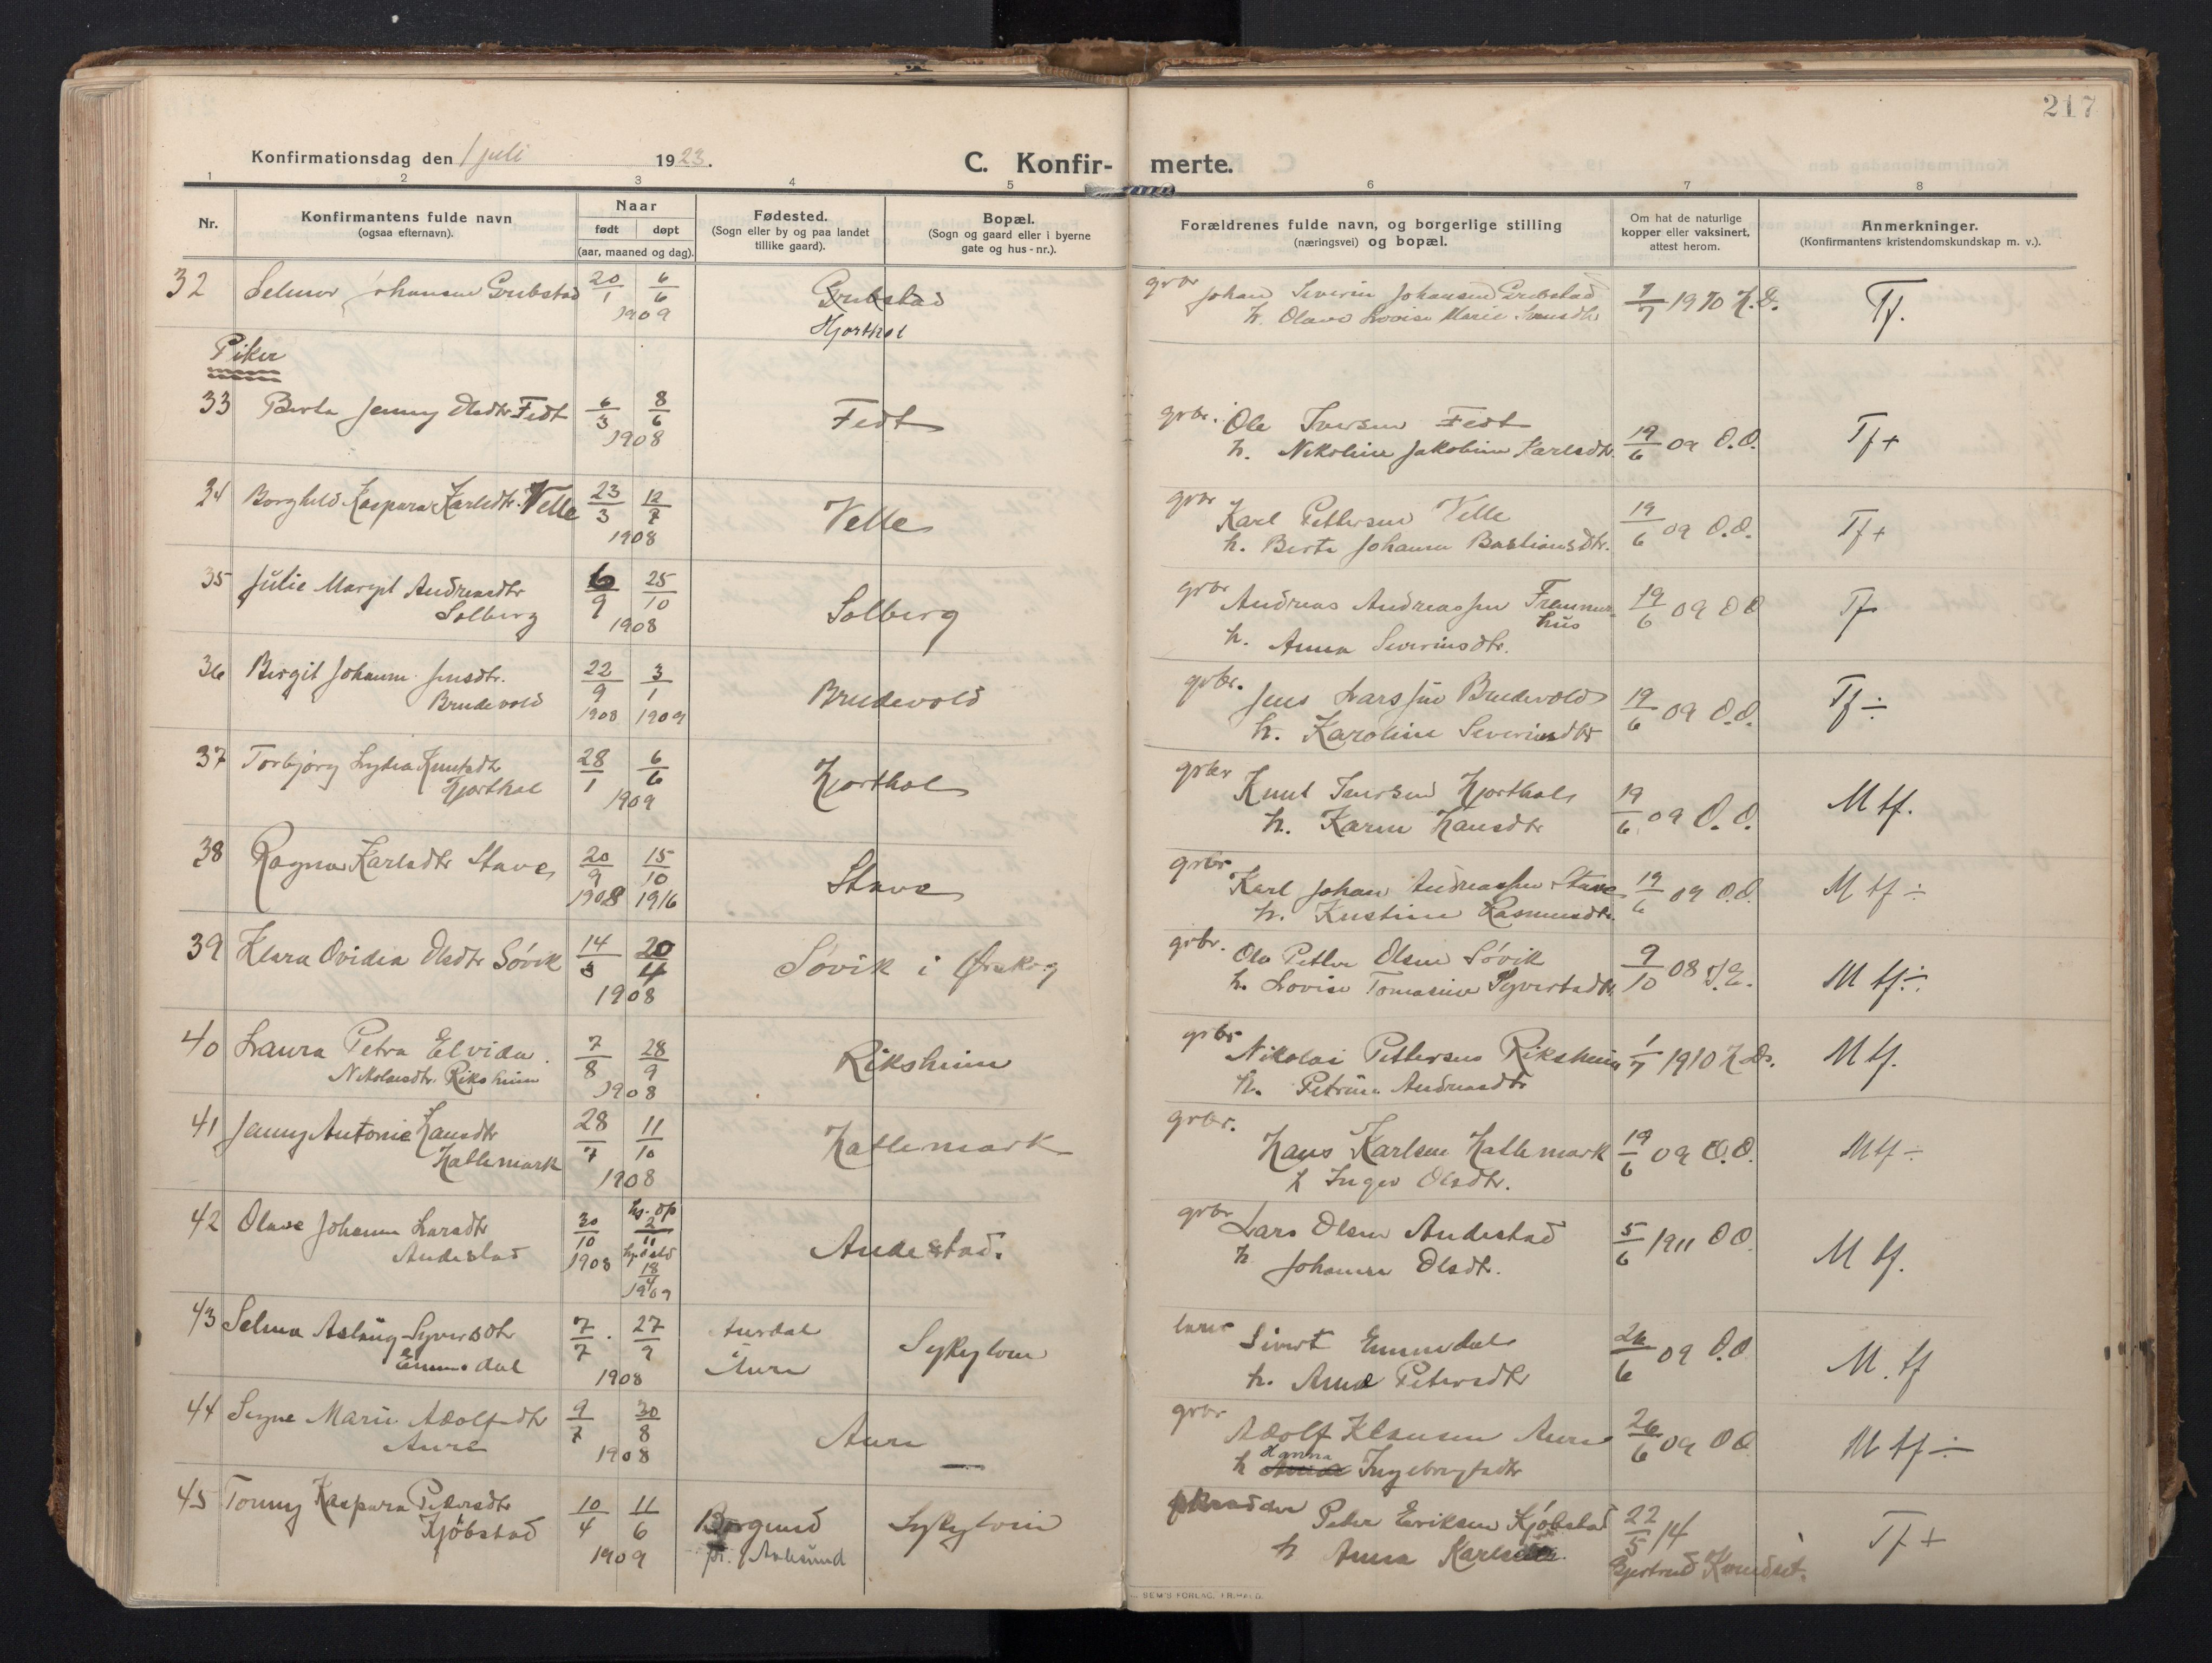 217
Konfirmationsdag den 1 juli 1923.
C. Konfir- merte.
1 2 3 4 5 6 7 8
Nr.
Konfirmantens fulde navn
(ogsaa efternavn).
Naar
født døpt
(aar, maaned og dag).
Fødested.
(Sogn eller by og paa landet
tillike gaard).
Bopæl.
(Sogn og gaard eller i byerne
gate og hus - nr.).
Forældrenes fulde navn, og borgerlige stilling
(næringsvei) og bopæl.
Om hat de naturlige
kopper eller vaksinert,
attest herom.
Anmerkninger.
(Konfirmantens kristendomskundskap m. v.).
32 Selmer Johansen Grebstad 20/1 6/6 1909 Grebstad
Hjorthol
grbr Johan Severin Johansen Grebstad
h. Olave Lovise Marie
1/7 1910 K.D. Tf.
Piker
33 Berta Jenny Olsdtr Fedt 6/3 8/6 1908 Fedt
grbr. Ole Iversen Fedt
h. Nikoline Jakobine Karlsdtr. 19/6 09 O.O. Tf +
34 Borghild Kaspara Karlsdtr. Velle 23/3 12/7 1908 Velle
grbr Karl Pettersen Velle
h. Berte Johanne Bastiansdtr. 19/6 09 O.O. Tf +
35 Julie Margit Andreasdtr
Solberg 6/9 25/10 1908 Solberg
grbr Andreas Andreassen Fremmer-
hus
h. Anna Severinsdtr. 19/6 09 O O Tf
36 Birgit Johanne Jensdtr.
Brudevold 22/9 1908 3/1 1909 Brudevold
grbr. Jens Larssen Brudevold
h. Karoline Severinsdtr 19/6 09 O.O. Tf ÷
37 Torbjørg Lydia Knutsdtr
Hjorthol 28/1 6/6 1909 Hjorthol
grbr Knut Iversen Hjorthol
h. Karen Hansdtr 19/6 09 O.O. M tf.
38 Ragna Karlsdtr Stave 20/9 1908 15/10 1916 Stave
grbr Karl Johan Andreassen Stave
h. Kristine Rasmusdtr. 19/6 09 O.O. M tf ÷
39 Klara Ovidia Olsdtr Søvik 14/3 20/4 1908 Søvik i Ørskog
grbr. Ole Petter Olsen Søvik
h. Lovise Tomasine Syvertsdtr 9/10 08 M tf. ÷
40 Laura Petra Elvida
Nikolaisdtr. Riksheim 7/8 28/9 1908 Riksheim
grbr Nikolai Pettersen Riksheim
h. Petrine Andreasdtr 1/7 1910 K.D. M tf.
41 Jenny Antonie Hansdtr
Hatlemark 28/7 11/10 1908 Hatlemark
grbr. Hans Karlsen Hatlemark
h Inger Olsdtr. 19/6 09 O.O. M tf ÷
42 Olave Johanne Larsdtr
Andestad 30/10 1908 hj. dp 2/11 18/4 1909 Andestad.
grbr Lars Olsen Andestad
h Johanne Olsdtr. 5/6 1911 O O. M tf.
43 Selma Aslaug Syversdtr
Emmedal 7/7 27/9 1908 Aurdal
Aure Sykylven
lærer Sivert Emmedal
h. Anne Petersdtr 26/6 09 O.O M. tf
44 Signe Marie Adolfsdtr
Aure 9/7 30/8 1908 Aure
grbr Adolf Klausen Aure
Hanna
h Ingebrigtsdtr 26/6 09 O O. M tf ÷
45 Tonny Kaspara Petersdtr
Kjøbstad 10/4 11/6 1909 Borgund
pr. Aalesund Sykylven
skrædder Peter Eriksen Kjøbstad
h Anna 22/5 14
Gjertrud Tf +
SEM'S FORLAG, FR.HALD.